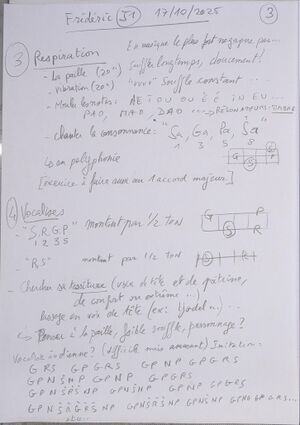 Frédéric S1 17/10/2025 3
En musique le plus fort ne gagne pas...
3 Respiration souffle longtemps, doucement!
- la paille (20")
- vibration (20") "vvvv" Souffle constant...
- Moule les notes: A E I O U OU É È IN EU...
PAO, MAO, DAO ...
- Chanter la consonance: "Sa, Ga, Pa, Sa"
1 3 5 8
↳ en polyphonie
G P
S
[exercice à faire sur au 1 accord majeur]
4 Vocalises
- "S, R, G, P" montant par 1/2 ton
1 2 3 5
G P
S R
- "R, S" montant par 1/2 ton
S R
- Chercher sa tessiture (voix de tête et de poitrine,
de confort ou extrême...)
passage en voix de tête (ex: Yodel...)...
↳ Penser à la paille, faible souffle, personnage?
Vocalise indienne? (difficile mais amusant) Imitation:
G R S G P G R S G P N P G P G R S
G P N S N P G P N P G P G R S
G P N S R S N P G P N S N P G P N P G P G R S